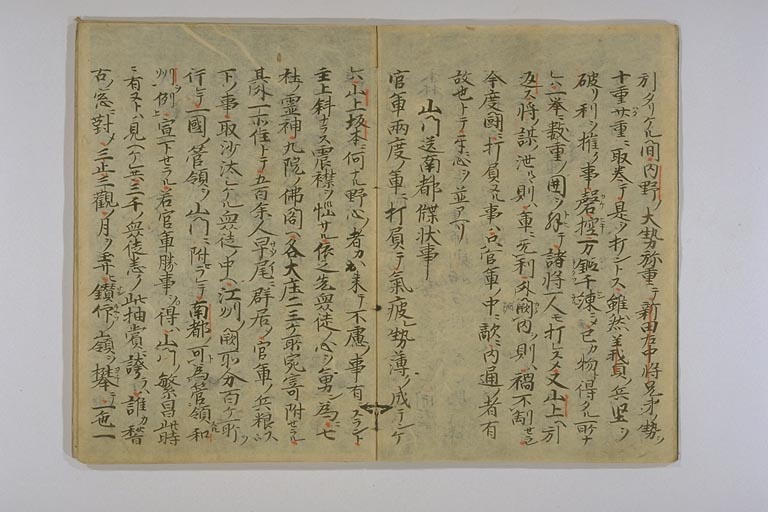 別タリケル間内野ノ大勢弥重テ新田右中将兄弟ノ勢ヲ
十重廿重ニ取巻テ是ヲ打ントス雖然義貞ノ兵堅ヲ
破リ利ヲ摧ク事磬控万鍛千練シ已カ物ト得タル所ナ
一挙ニ数重ノ囲ヲ解テ諸將一人モ打レス又山上ヘ引
返ス將謀泄ル則軍ニ无利外闕内則禍不制セラレ
今度國ニ打負ヌル事官軍ノ中ニ敵ニ内通ノ者有
故也トテ互心ヲ並
山門送南都牒状事
官軍兩度ノ軍ニ打負テ氣疲レ勢薄ク成テンケ
山上坂本ニ何ナル野心ノ者カ出来テ不慮ノ事有スラント
主上斜ナラス震襟ヲ悩サル依之先衆徒ノ心ヲ勇シ為ニ七
社ノ靈神九院ノ佛閣ヘ各大庄二三ケ所宛寄附セラル
其外一所住トテ五百余人早尾ニ群居ノ官軍ノ兵粮以
下ノ事取沙汰シケル衆徒ノ中ヘ江州ノ闕所分百ケ所ヲ
行ヒテ一國ノ管領ヲ山門ニ附ラレテ南都可為管領和
州ノ例ニ宣下セラル若官軍勝事ヲ得山門ノ繁昌此時
ニ有ヌト見ヘケ共三千ノ衆徒悉ク此抽賞ニ誇ラ誰カ稽
古ノ窓ニ對シ三止三觀ノ月ヲ弄ヒ鑽仰ノ嶺ヲ攀テ一色一